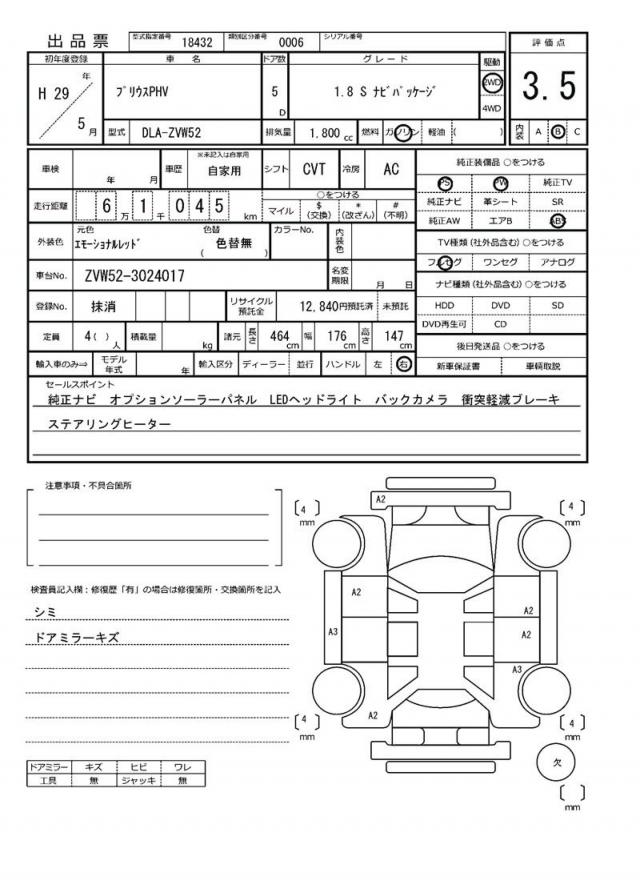 出品票 型式指定番号 18432 類別区分番号 0006 シリアル番号
初年度登録 車名 ドア数 グレード 駆動 評価点
H 29 年 5 月 プリウスPHV 5 D 1.8 S ナビパッケージ 2WD 4WD 3.5
型式 DLA-ZVW52 排気量 1,800 cc 燃料 ガソリン 軽油 ( ) 内装 A B C
車検 年 月 車歴 ※未記入は自家用 自家用 シフト CVT 冷房 AC 純正装備品 ○をつける
PS PW 純正TV
走行距離 6 万 1 千 0 4 5 km ○をつける
マイル $ (交換) * (改ざん) # (不明)
純正ナビ 革シート SR
純正AW エアB ABS
外装色 元色 エモーショナルレッド 色替 ( 色替無 ) カラーNo. 内装色
TV種類 (社外品含む) ○をつける
フルセグ ワンセグ アナログ
車台No. ZVW52-3024017 名変期限 月 日
ナビ種類 (社外品含む) ○をつける
登録No. 抹消 リサイクル預託金 12,840円預託済 未預託
HDD DVD SD
DVD再生可 CD
定員 4( ) 人 積載量 kg 諸元 長さ 464 cm 幅 176 cm 高さ 147 cm
後日発送品 ○をつける
輸入車のみ⇒ モデル年式 年 輸入区分 ディーラー 並行 ハンドル 左 右
新車保証書 車輌取説
セールスポイント
純正ナビ オプションソーラーパネル LEDヘッドライト バックカメラ 衝突軽減ブレーキ
ステアリングヒーター
注意事項・不具合箇所
検査員記入欄：修復歴「有」の場合は修復箇所・交換箇所を記入
シミ
ドアミラーキズ
ドアミラー キズ ヒビ ワレ
工具 無 ジャッキ 無
A2
[ 4 ] mm
[ 4 ] mm
A2
A2
A3
A2
A3
A2
[ 4 ] mm
[ 4 ] mm
欠
[ ] mm